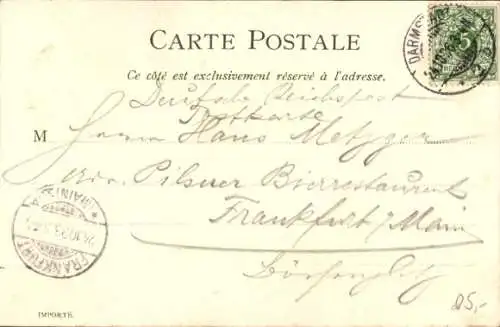 CARTE POSTALE
Ce côté est exclusivement réservé à l'adresse.
Deutsche Reichspost
Postkarte
M Herrn Hans Metzger
Pilsner Bierrestaurant
Frankfurt / Main
Börsenplatz
DARMS
5
FRANKFURT
(MAIN)
IMPORTÉ.
25,-